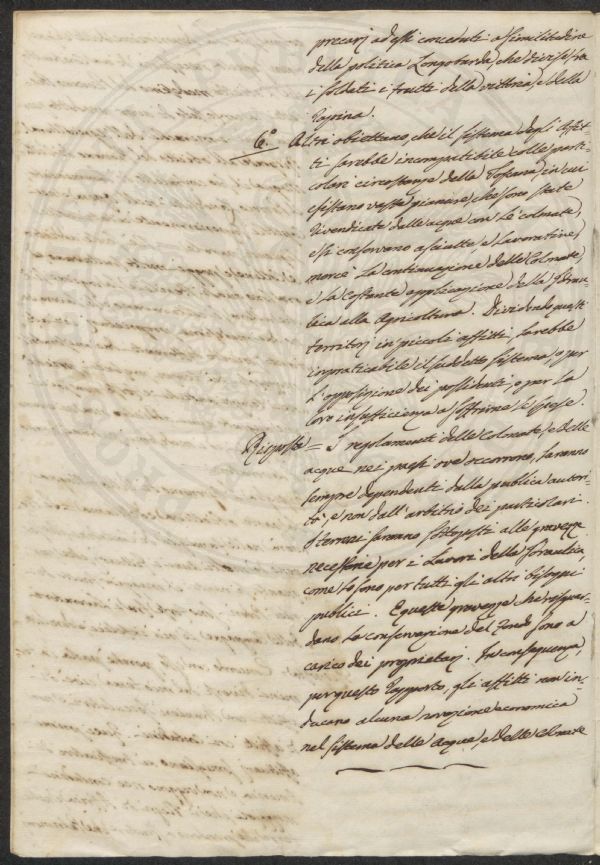 precarj ad essi conceduti a similitudine
della politica Longobarda, che divise fra
i soldati i frutti della vittoria, e della
rapina.
6.° Altri obiettano, che il sistema degli Affit-
ti sarebbe incompatibile colle parti-
colari circostanze della Toscana, in cui
esistano vaste pianure, che sono state
rivendicate dalle acque con le colmate,
e si conservano asciutte, e Lavorative,
mercè la continuazione delle Colmate,
e la costante applicazione della Idrau-
lica alla Agricoltura. Dividendo questi
territorj in piccoli affitti, sarebbe
impraticabile il suddetto sistema, o per
l'opposizione dei possidenti, o per la
loro insufficienza a soffrirne le spese.
Risposta = I regolamenti delle Colmate, e delle
acque nei paesi ove occorrono, saranno
sempre dependenti dalla publica autori-
tà, e non dall'arbitrio dei particolari.
I terreni saranno sottoposti alle gravezze
necessarie per i Lavori della Idraulica
come lo sono per tutti gli altri bisogni
publici. E queste gravezze che risguar-
dano la conservazione del fondo sono a
carico dei proprietarj. In conseguenza,
per questo rapporto, gli affitti non in-
ducano alcuna novazione economica
nel sistema delle Acque, e delle Colmate